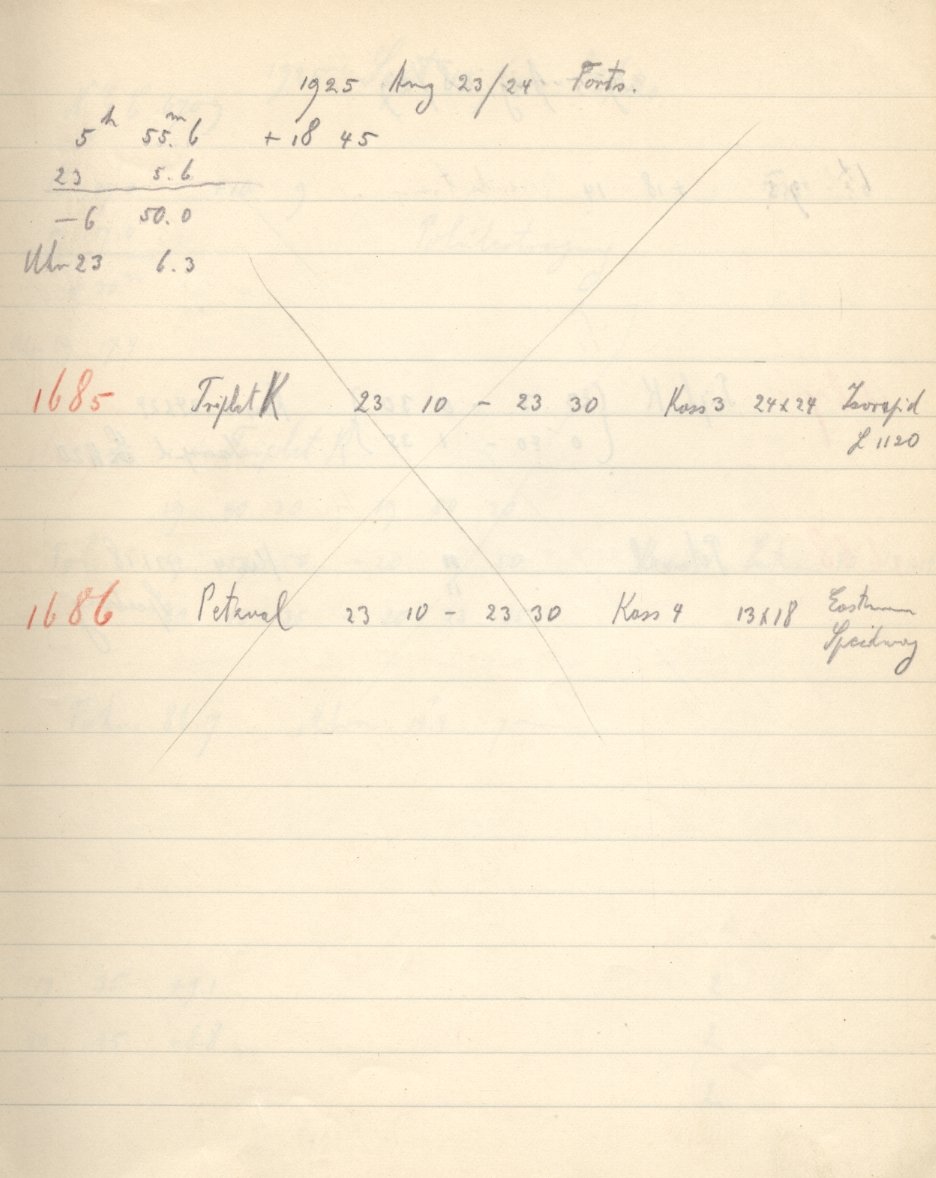 1925 Aug 23/24 Forts.
5h 55.m6 + 18 45
23 5.6
— 6 50.0
Uhr 23 6.3
1685 Triplet K 23 10 - 23 30 Kass 3 24x24 Isorapid
L 1120
1686 Petzval 23 10 - 23 30 Kass 4 13x18 Eastman
Speedway